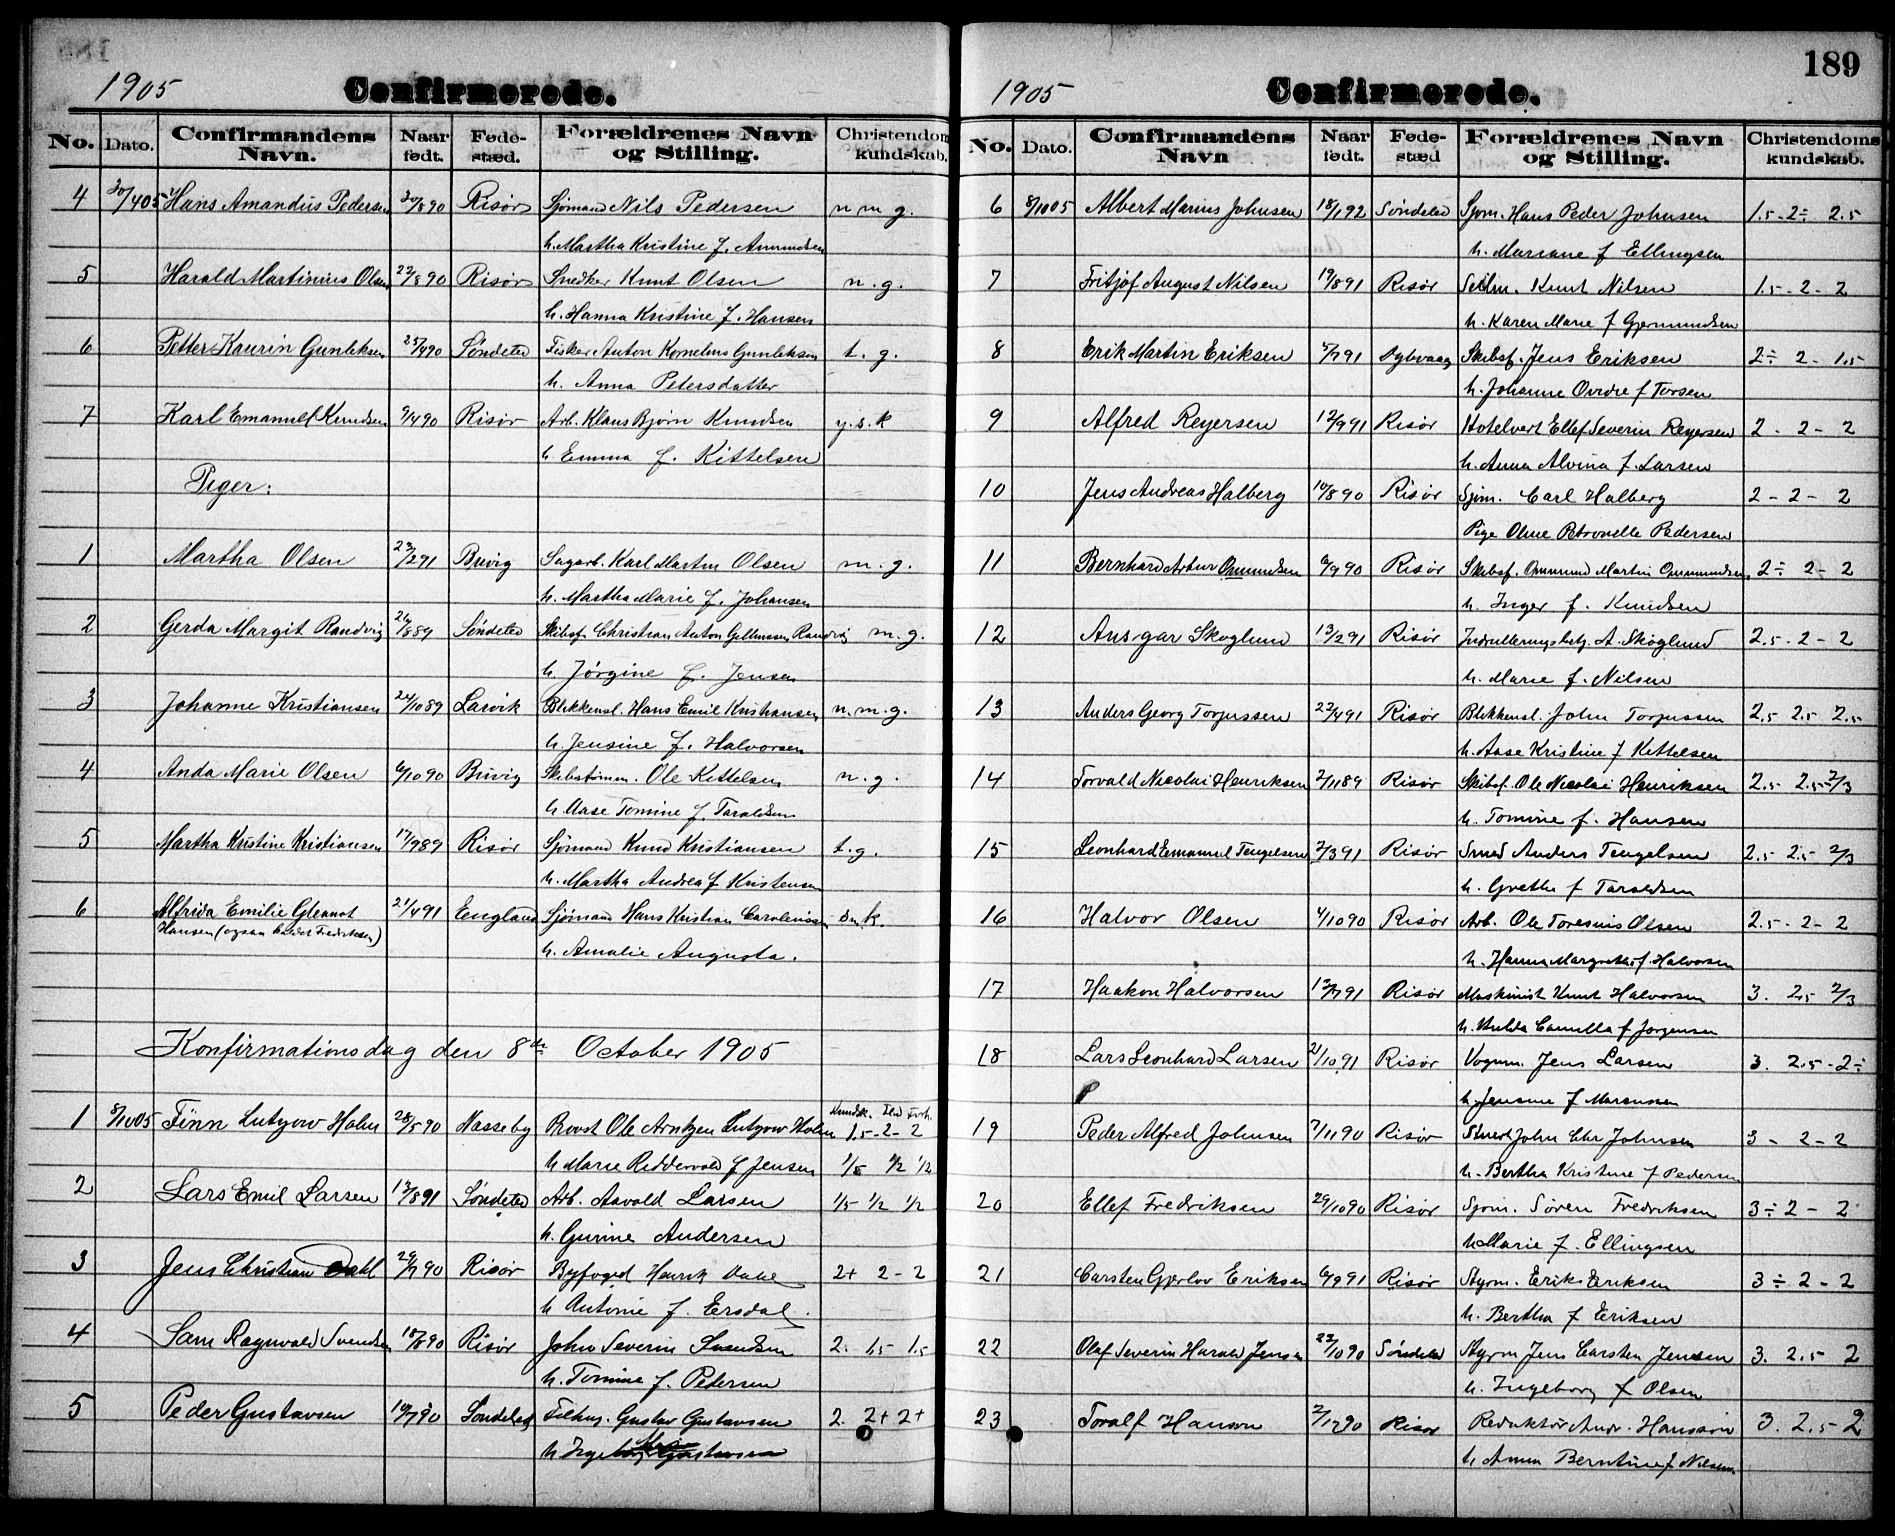 1905
Confirmerede.
No. Dato. Confirmandens Navn. Naar født.Føde-stæd. Forældrenes Navn og Stilling. Christendoms kundskab.
4 30/4 05 Hans Amandus Pedersen 30/8 90 Risør Sjømand Nils Pedersen n m g.
h. Martha Kristine f. Amundsen
5 Harald Martinius Olsen 22/8 90 Risør Snedker Knut Olsen n. g.
h. Hanna Kristine f. Hansen
6 Petter Kaurin Gunleksen 25/4 90 Søndeled Fisker Anton Kornelius Gunleksen t. g.
h. Anna Petersdatter
7 Karl Emanuel Knudsen 9/4 90 Risør Arb. Klaus Bjørn Knudsen
h Emma f. Kittelsen
Piger:
1 Martha Olsen 23/2 91 Buvig Sagarb. Karl Martin Olsen m. g.
h. Martha Marie f. Johansen
2 Gerda Margit Randvig 26/8 89 Søndeled Skibsf. Christian Anton Randvig m. g.
h. Jørgine f. Jensen
3 Johanne Kristiansen 24/10 89 Larvik Blikkensl. Hans Emil Kristiansen n. m. g.
h. Jensine f. Halvorsen
4 Anda Marie Olsen 6/10 90 Buvig Skibstømm. Ole Kittelsen n. g.
h. Aase Tomine f. Taraldsen
5 Martha Kristine Kristiansen 17/9 89 Risør Sjømand Knud Kristiansen t. g.
h. Martha Andrea f Kristensen
6 Alfrida Emilie 21/4 91 England Sjømand Hans Kristian
Hansen (ogsaa kaldet Fredriksen)
h. Amalie Augusta.
Konfirmationsdag den 8de October 1905
Kundsk. Flid Forh.
1 8/10 05 Finn Lutzow Holm 28/5 90 Næsseby Provst Ole Arntzen Lutzow Holm 1.5 - 2 - 2
h Marie Reddervold f Jensen 1/5 1/2 1/2
2 Lars Emil Larsen 13/8 91 Søndeled Arb. Aavald Larsen 1/5 1/2 1/2
h. Gurine Andersen
3 Jens Christian Dahl 29/7 90 Risør Byfoged Henrik Dahl 2+ 2 - 2
h Antonie f. Ersdal.
4 Sam Ragnvald Svendsen 18/8 90 Risør John Severin Svendsen 2. 1.5 1.5
h. Tomine f. Petersen
5 Peder Gustavsen 10/7 90 Søndeled Gustav Gustavsen 2. 2+ 2+
h Ingeborg Gustavsen
189
1905
Confirmerede.
No. Dato. Confirmandens Navn Naar født. Føde-stæd Forældrenes Navn og Stilling. Christendoms kundskab.
6 8/10 05 Albert Marius Johnsen 18/1 92 Søndeled Sjøm. Hans Peder Johnsen 1.5 - 2 ÷ 2.5
h. Mariane f Ellingsen
7 Fritjof August Nilsen 19/8 91 Risør Knut Nilsen 1.5 - 2 - 2
h. Karen Marie f Gjermundsen
8 Erik Martin Eriksen 5/7 91 Dybvaag Skibsf. Jens Eriksen 2 ÷ 2 - 1.5
h. Johanne Ovidre f Torsen
9 Alfred Reyersen 12/9 91 Risør Hotelvert Ellef Severin Reyersen 2 - 2 - 2
h. Anna Alvina f. Larsen
10 Jens Andreas Halberg 10/8 90 Risør Sjøm. Carl Halberg 2 - 2 - 2
Pige Oline Petronelle Pedersen
11 Bernhard Artur Ommundsen 6/9 90 Risør Skibsf. Ommund Martin Ommundsen 2 ÷ 2 - 2
h. Inger f. Knudsen
12 Ansgar Skoglund 13/2 91 Risør A. Skoglund 2.5 - 2 - 2
h. Marie f. Nilsen
13 Anders Georg Torjussen 22/4 91 Risør Blikkensl. John Torjussen 2.5 2.5 2.5
h. Aase Kristine f Kittelsen
14 Torvald Nicolai Henriksen 2/11 89 Risør Skibsf. Ole Nicolai Henriksen 2.5 2.5 - 2/3
h. Tomine f. Hansen
15 Leonhard Emanuel Tengelsen 2/3 91 Risør Smed Anders Tengelsen 2.5 2.5 2/3
h. Grethe f Taraldsen
16 Halvor Olsen 4/10 90 Risør Arb. Ole Toresius Olsen 2.5 - 2 - 2
h. Hanna Margrethe f. Halvorsen
17 Haakon Halvorsen 13/7 91 Risør Maskinist Knut Halvorsen 3. 2.5 2/3
h. Hulda Camilla f Jørgensen
18 Lars Leonhard Larsen 21/10 91 Risør Vognm. Jens Larsen 3. 2.5 - 2 ÷
h. Jensine f Marcussen
19 Peder Alfred Johnsen 7/11 90 Risør Smed John Chr Johnsen 3 - 2 - 2
h. Bertha Kristine f Pedersen
20 Ellef Fredriksen 29/10 90 Risør Sjøm. Søren Fredriksen 3 ÷ 2 - 2
h Marie f. Ellingsen
21 Carsten Gjerlov Eriksen 6/9 91 Risør Styrm. Erik Eriksen 3 ÷ 2 - 2
h. Bertha f Eriksen
22 Olaf Severin Harald Jensen 23/10 90 Søndeled Styrm Jens Carsten Jensen 3. 2.5 2
h. Ingeborg f Olsen
23 Toralf Hanson 2/12 90 Risør Redaktør Andr. Hansson 3. 2.5 - 2
h Anna Berntine f Nilsen.